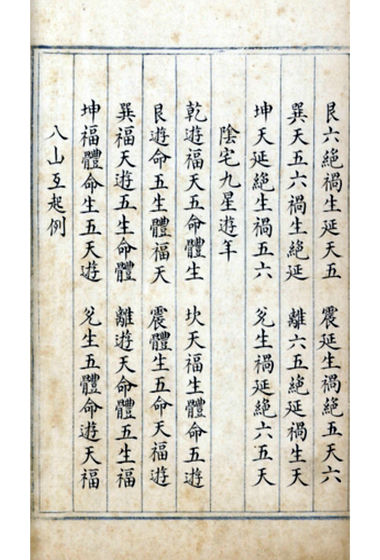 艮六絕禍生延天五　震延生禍絕五天六
巽天五六禍生絕延　離六五絕延禍生天
坤天延絕生禍五六　兌生禍延絕六五天
陰宅九星遊年
乾遊福天五命體生　坎天福生體命五遊
艮遊命五生體福天　震體生五命天福遊
巽福天遊五生命體　離遊天命體五生福
坤福體命生五天遊　兌生五體命遊天福
八山互起例